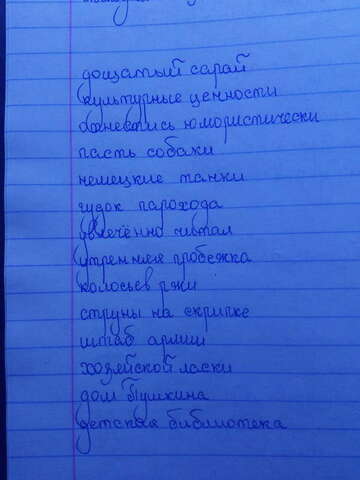 дощатый сарай
культурные ценности
отнестись юмористически
пасть собаки
немецкие танки
гудок парохода
увлечённо читал
утренняя пробежка
колосьев ржи
струны на скрипке
штаб армии
хозяйской ласки
дом Пушкина
детская библиотека